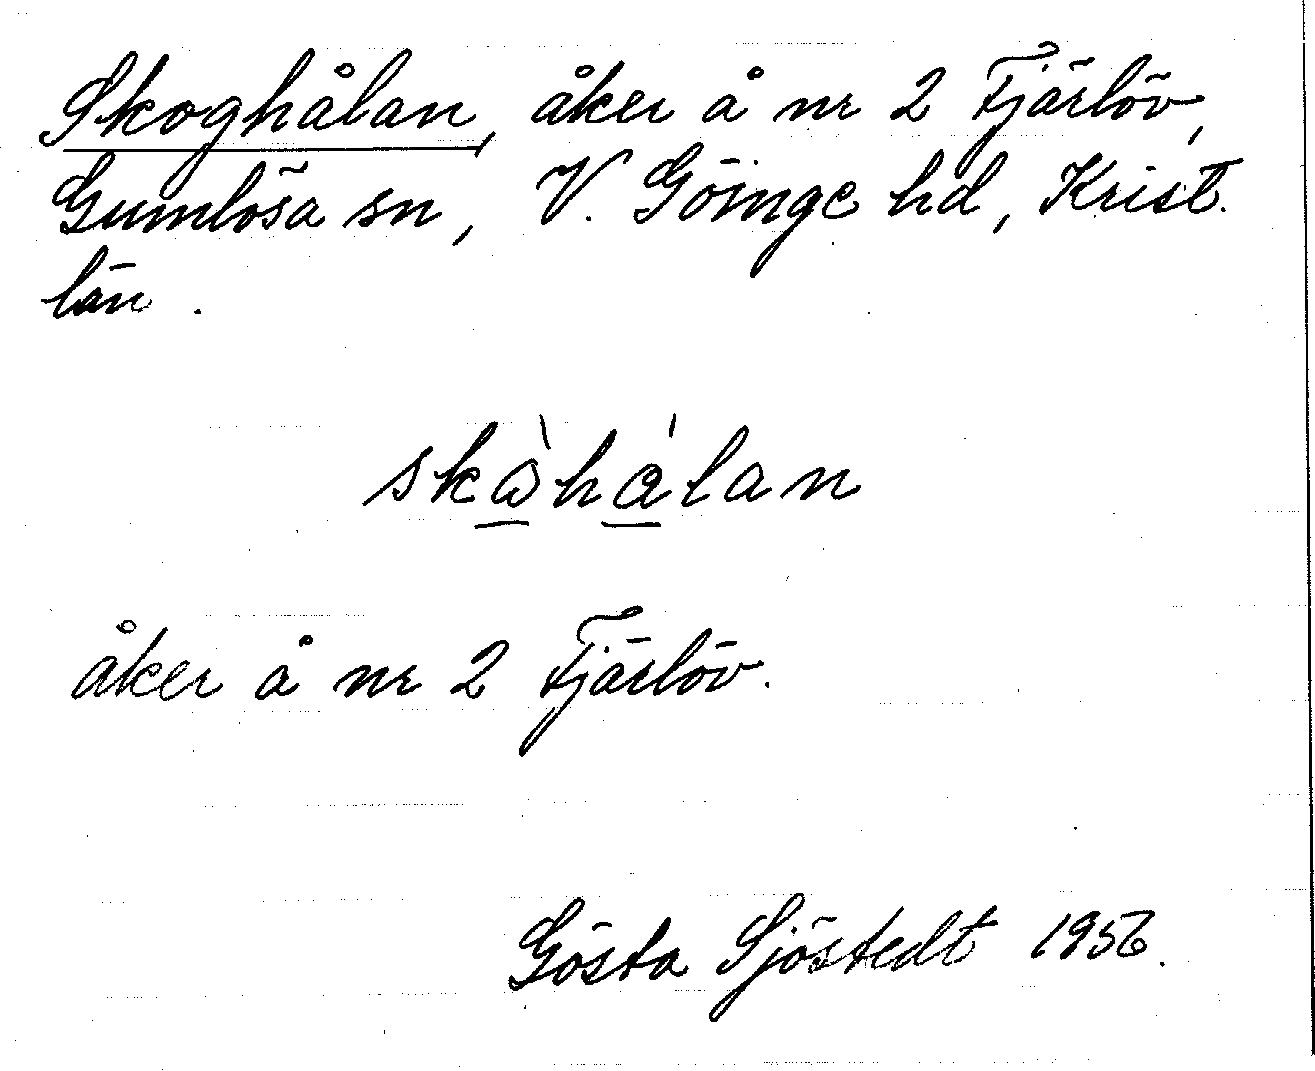 Skoghålan, åker å nr 2 Fjärlöv,
Gumlösa sn, V. Göinge hd, Krist.
län.
åker å nr 2 Fjärlöv.
Gösta Sjöstedt 1956.